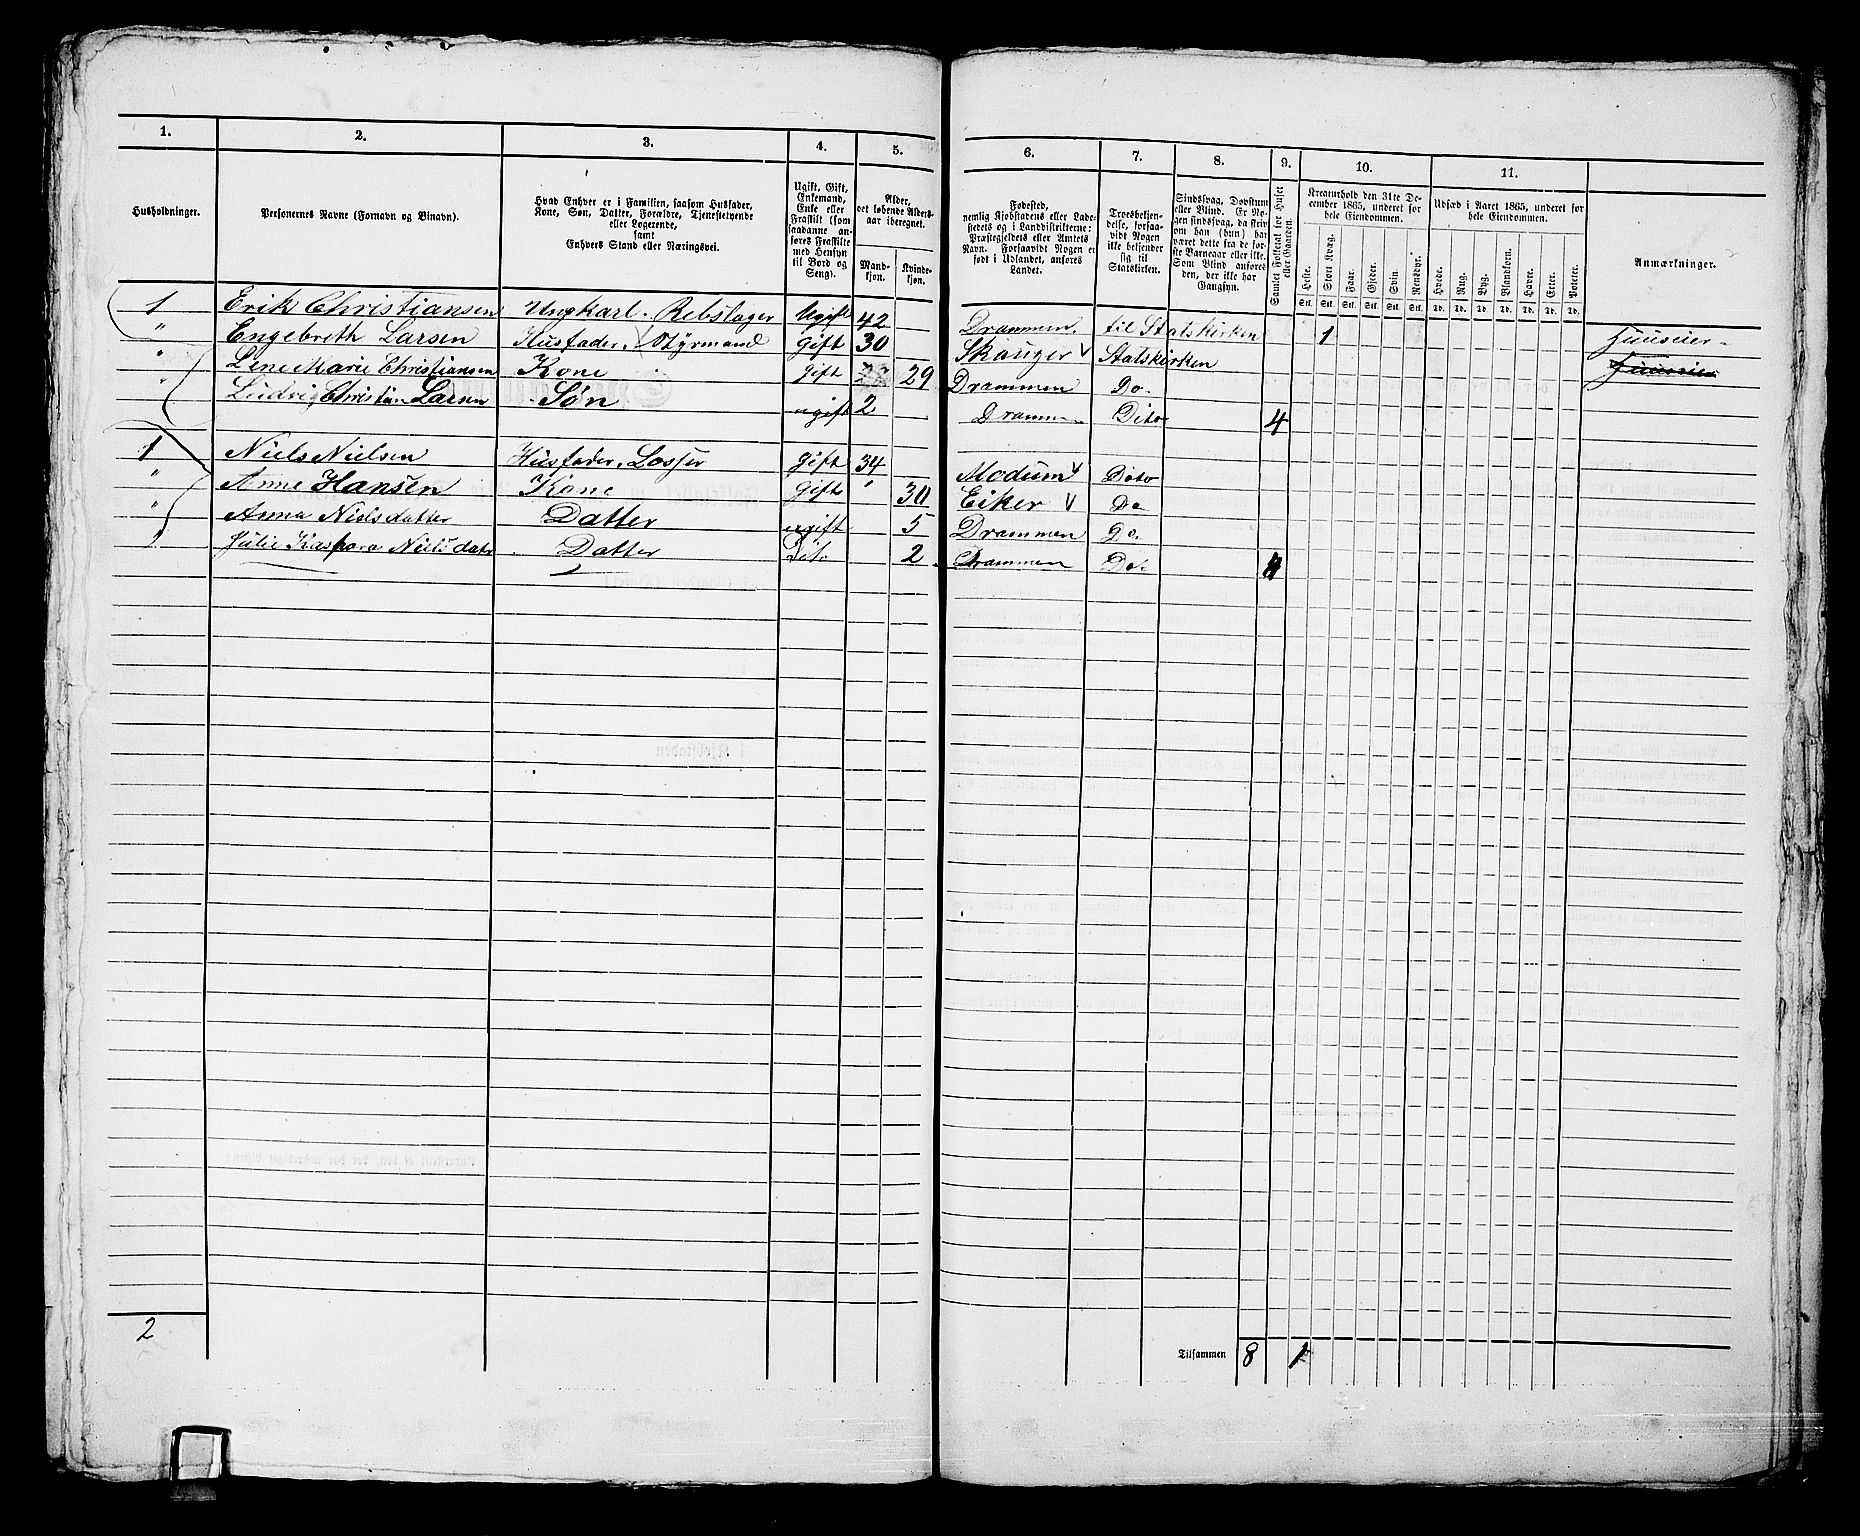 1. 2. 3. 4. 5. 6. 7. 8. 9. 10. 11.
Husholdninger.
Personernes Navne (Fornavn og Binavn).
Hvad Enhver er i Familien, saasom Husfader,
Kone, Søn, Datter, Forældre, Tjenestetyende
eller Logerende,
samt
Enhvers Stand eller Næringsvei.
Ugift, Gift,
Enkemand,
Enke eller
Fraskilt
(som
saadanne an-
føres Fraskilte
med Hensyn
til Bord og
Seng).
Alder,
det løbende Alders-
aar iberegnet.
Mand-
kjøn.
Kvinde-
kjøn.
Fødested,
nemlig Kjøbstadens eller Lade-
stedets og i Landdistrikterne:
Præstegjeldets eller Amtets
Navn. Forsaavidt Nogen er
født i Udlandet, anføres
Landet.
Troesbekjen-
delse, forsaa-
vidt Nogen
ikke bekjender
sig til
Statskirken.
Sindssvag, Døvstum
eller Blind. Er No-
gen sindssvag, da skriv
om han (hun) har
været dette fra de før-
ste Barneaar eller ikke.
Som Blind anføres
den, der ikke har
Gangsyn.
Samlet Folketal for Huset
eller Gaarden.
Kreaturhold den 31te De-
cember 1865, underet for
hele Eiendommen.
Heste. Stort Kvæg. Faar. Gjeder. Svin. Rensdyr.
Stk. Stk. Stk. Stk. Stk. Stk.
Udsæd i Aaret 1865, underet for
hele Eiendommen.
Hvede. Rug. Byg. Blandkorn. Havre. Erter. Poteter.
Td. Td. Td. Td. Td. Td. Td.
Anmærkninger.
1 Erik Christiansen Ungkarl. Rebslager Ugift 42 Drammen. til Statskirken 1 Huuseier
" Engebreth Larsen Husfader, Styrmand gift 30 Skauger Statskirken
" Line Marie Christiansen Kone gift 29 Drammen Do
" Ludvig Christian Larsen Søn ugift 2 Dramm Dito 4
1 Niels Nielsen Husfader, Losser gift 34 Modum Dito
" Anne Hansen Kone gift " 30 Eiker Do
" Anna Nielsdatter Datter ugift 5 Drammen Do.
" Julie Kaspara Nielsdatr Datter Dito 2 Drammen Do. 4
2
Tilsammen 8 1